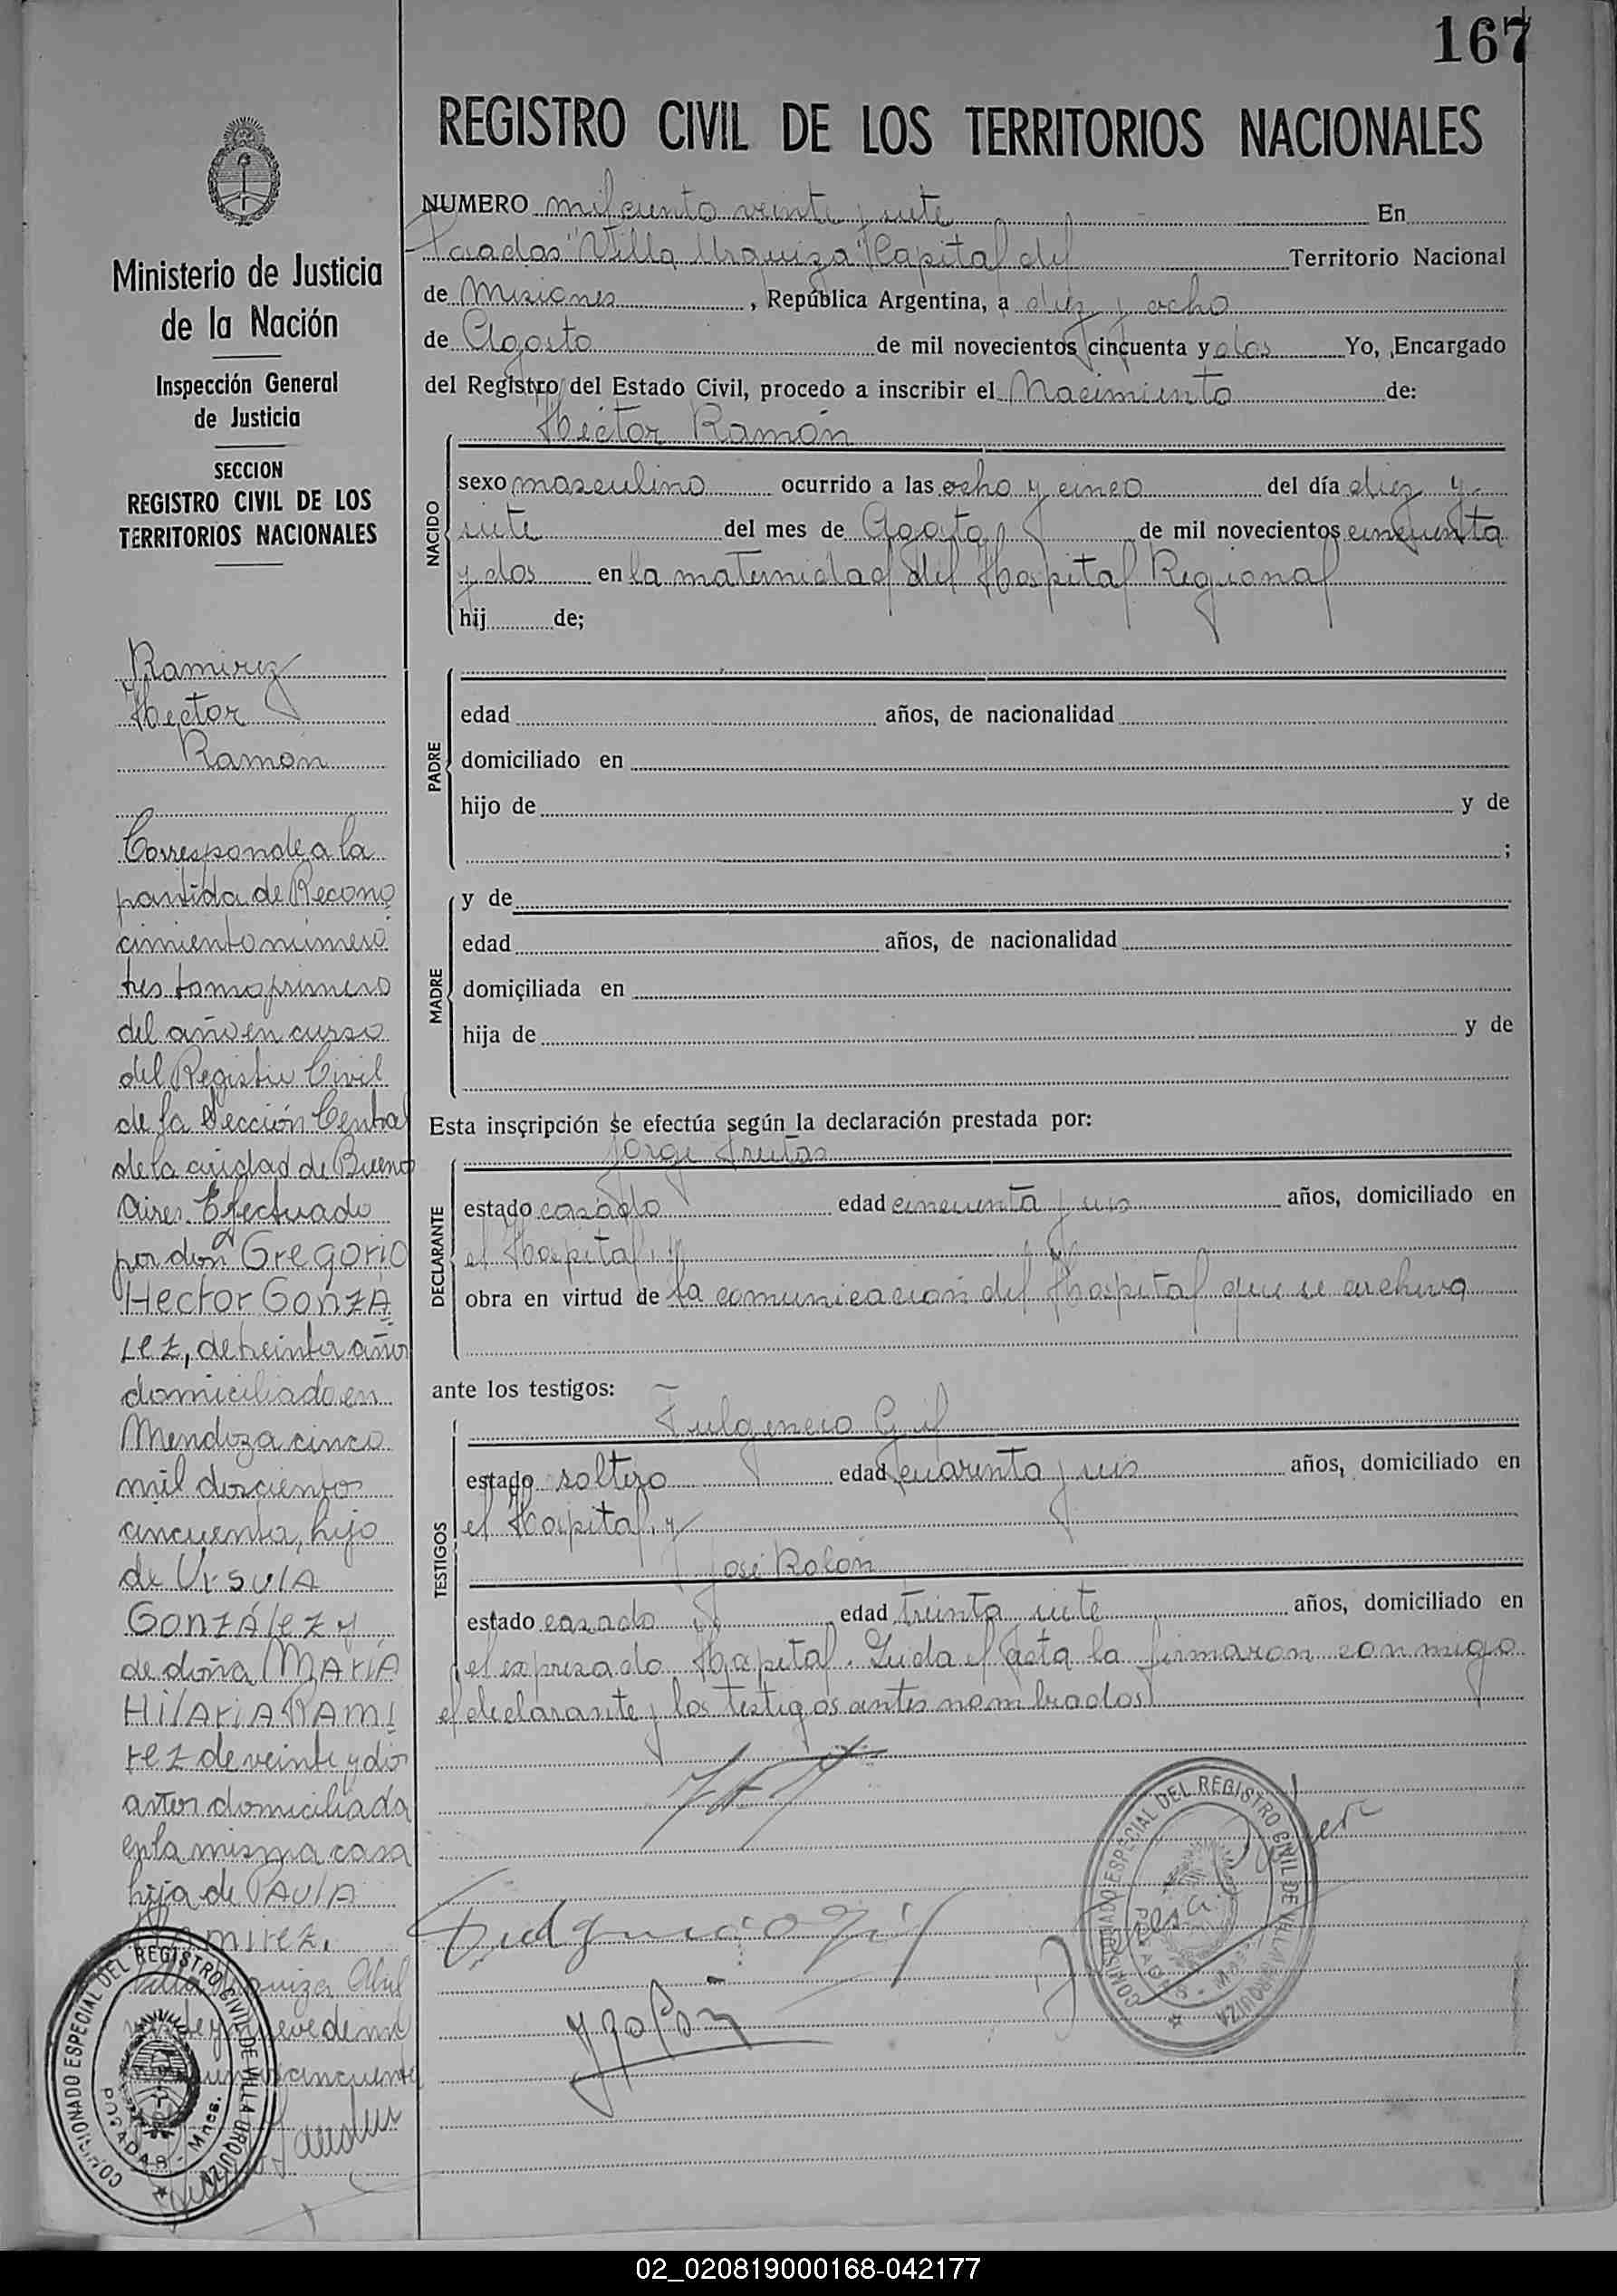 167
REGISTRO CIVIL DE LOS TERRITORIOS NACIONALES
Ministerio de Justicia
de la Nación
Inspección General
de Justicia
SECCION
REGISTRO CIVIL DE LOS
TERRITORIOS NACIONALES
Ramirez
Hector
Ramon
Corresponde a la
partida de Recono
cimiento número
tres tomo primero
del año en curso
del Registro Civil
de la Sección Central
de la ciudad de Buenos
Aires. Efectuado
por don GREGORIO
HECTOR GONZÁ
LEZ, de treinta años
domiciliado en
Mendoza cinco
mil doscientos
cincuenta, hijo
de URSULA
GONZÁLEZ y
de doña MARÍA
HILARIA RAMI
REZ de veinte y dos
años domiciliada
en la misma casa
hija de PAULA
Ramirez.
Villa Urquiza Abril
veinte y nueve de mil
cincuenta
COMISIONADO ESPECIAL DEL REGISTRO CIVIL DE VILLA URQUIZA
POSADAS - Mnes.
NUMERO mil ciento veinte y siete En
Posadas "Villa Urquiza" Capital del Territorio Nacional
de Misiones, República Argentina, a diez y ocho
de Agosto de mil novecientos cincuenta y dos Yo, Encargado
del Registro del Estado Civil, procedo a inscribir el Nacimiento de:
Héctor Ramón
NACIDO
sexo masculino ocurrido a las ocho y cinco del día diez y
siete del mes de Agosto de mil novecientos cincuenta
y dos en la maternidad del Hospital Regional
hij de;
PADRE
edad años, de nacionalidad
domiciliado en
hijo de y de
;
MADRE
y de
edad años, de nacionalidad
domiciliada en
hija de y de
Esta inscripción se efectúa según la declaración prestada por:
DECLARANTE
Jorge Freitas
estado casado edad cincuenta y uno años, domiciliado en
el Hospital, y
obra en virtud de la comunicación del Hospital que se archiva
ante los testigos:
TESTIGOS
Fulgencio Gil
estado soltero edad cuarenta y seis años, domiciliado en
el Hospital, y
José Rolón
estado casado edad treinta siete años, domiciliado en
el expresado Hospital. Leida el Acta la firmaron conmigo
el declarante y los testigos antes nombrados
Fulgencio Gil
J Rolón
COMISIONADO ESPECIAL DEL REGISTRO CIVIL DE VILLA URQUIZA
POSADAS - Mnes.
02_020819000168-042177